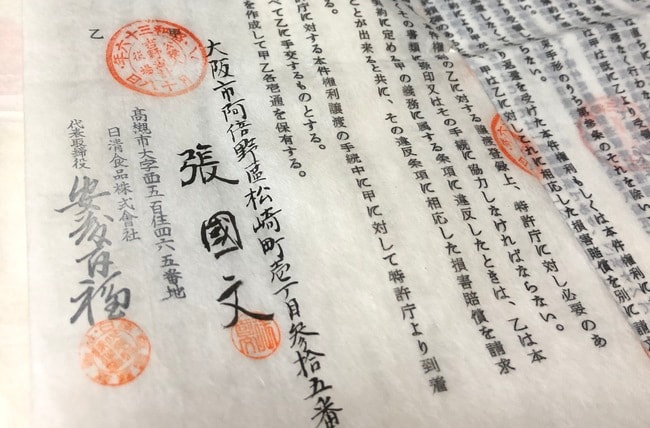 手形のうち第参条のそれを除い
返還を受けた本件権利もしくは本件権利
らない。
甲は乙に対しこれに相応した損害賠償を別に請求
の乙に対する譲渡登録上、特許庁に対し必要のあ
その書類に捺印又はその手続に協力しなければならない。
約に定めた甲の義務に属する条項に違反したときは、乙は本
ことが出来ると共に、その違反条項に相応した損害賠償を請求
庁に対する本件権利譲渡の手続中に甲に対して特許庁より到着
て乙に手交するものとする。
を作成して甲乙各壱通を保有する。
大阪市阿倍野區松崎町壱丁目参拾五番
張國文
乙
高槻市大字西五百住四六五番地
日清食品株式會社
代表取締役 安藤百福